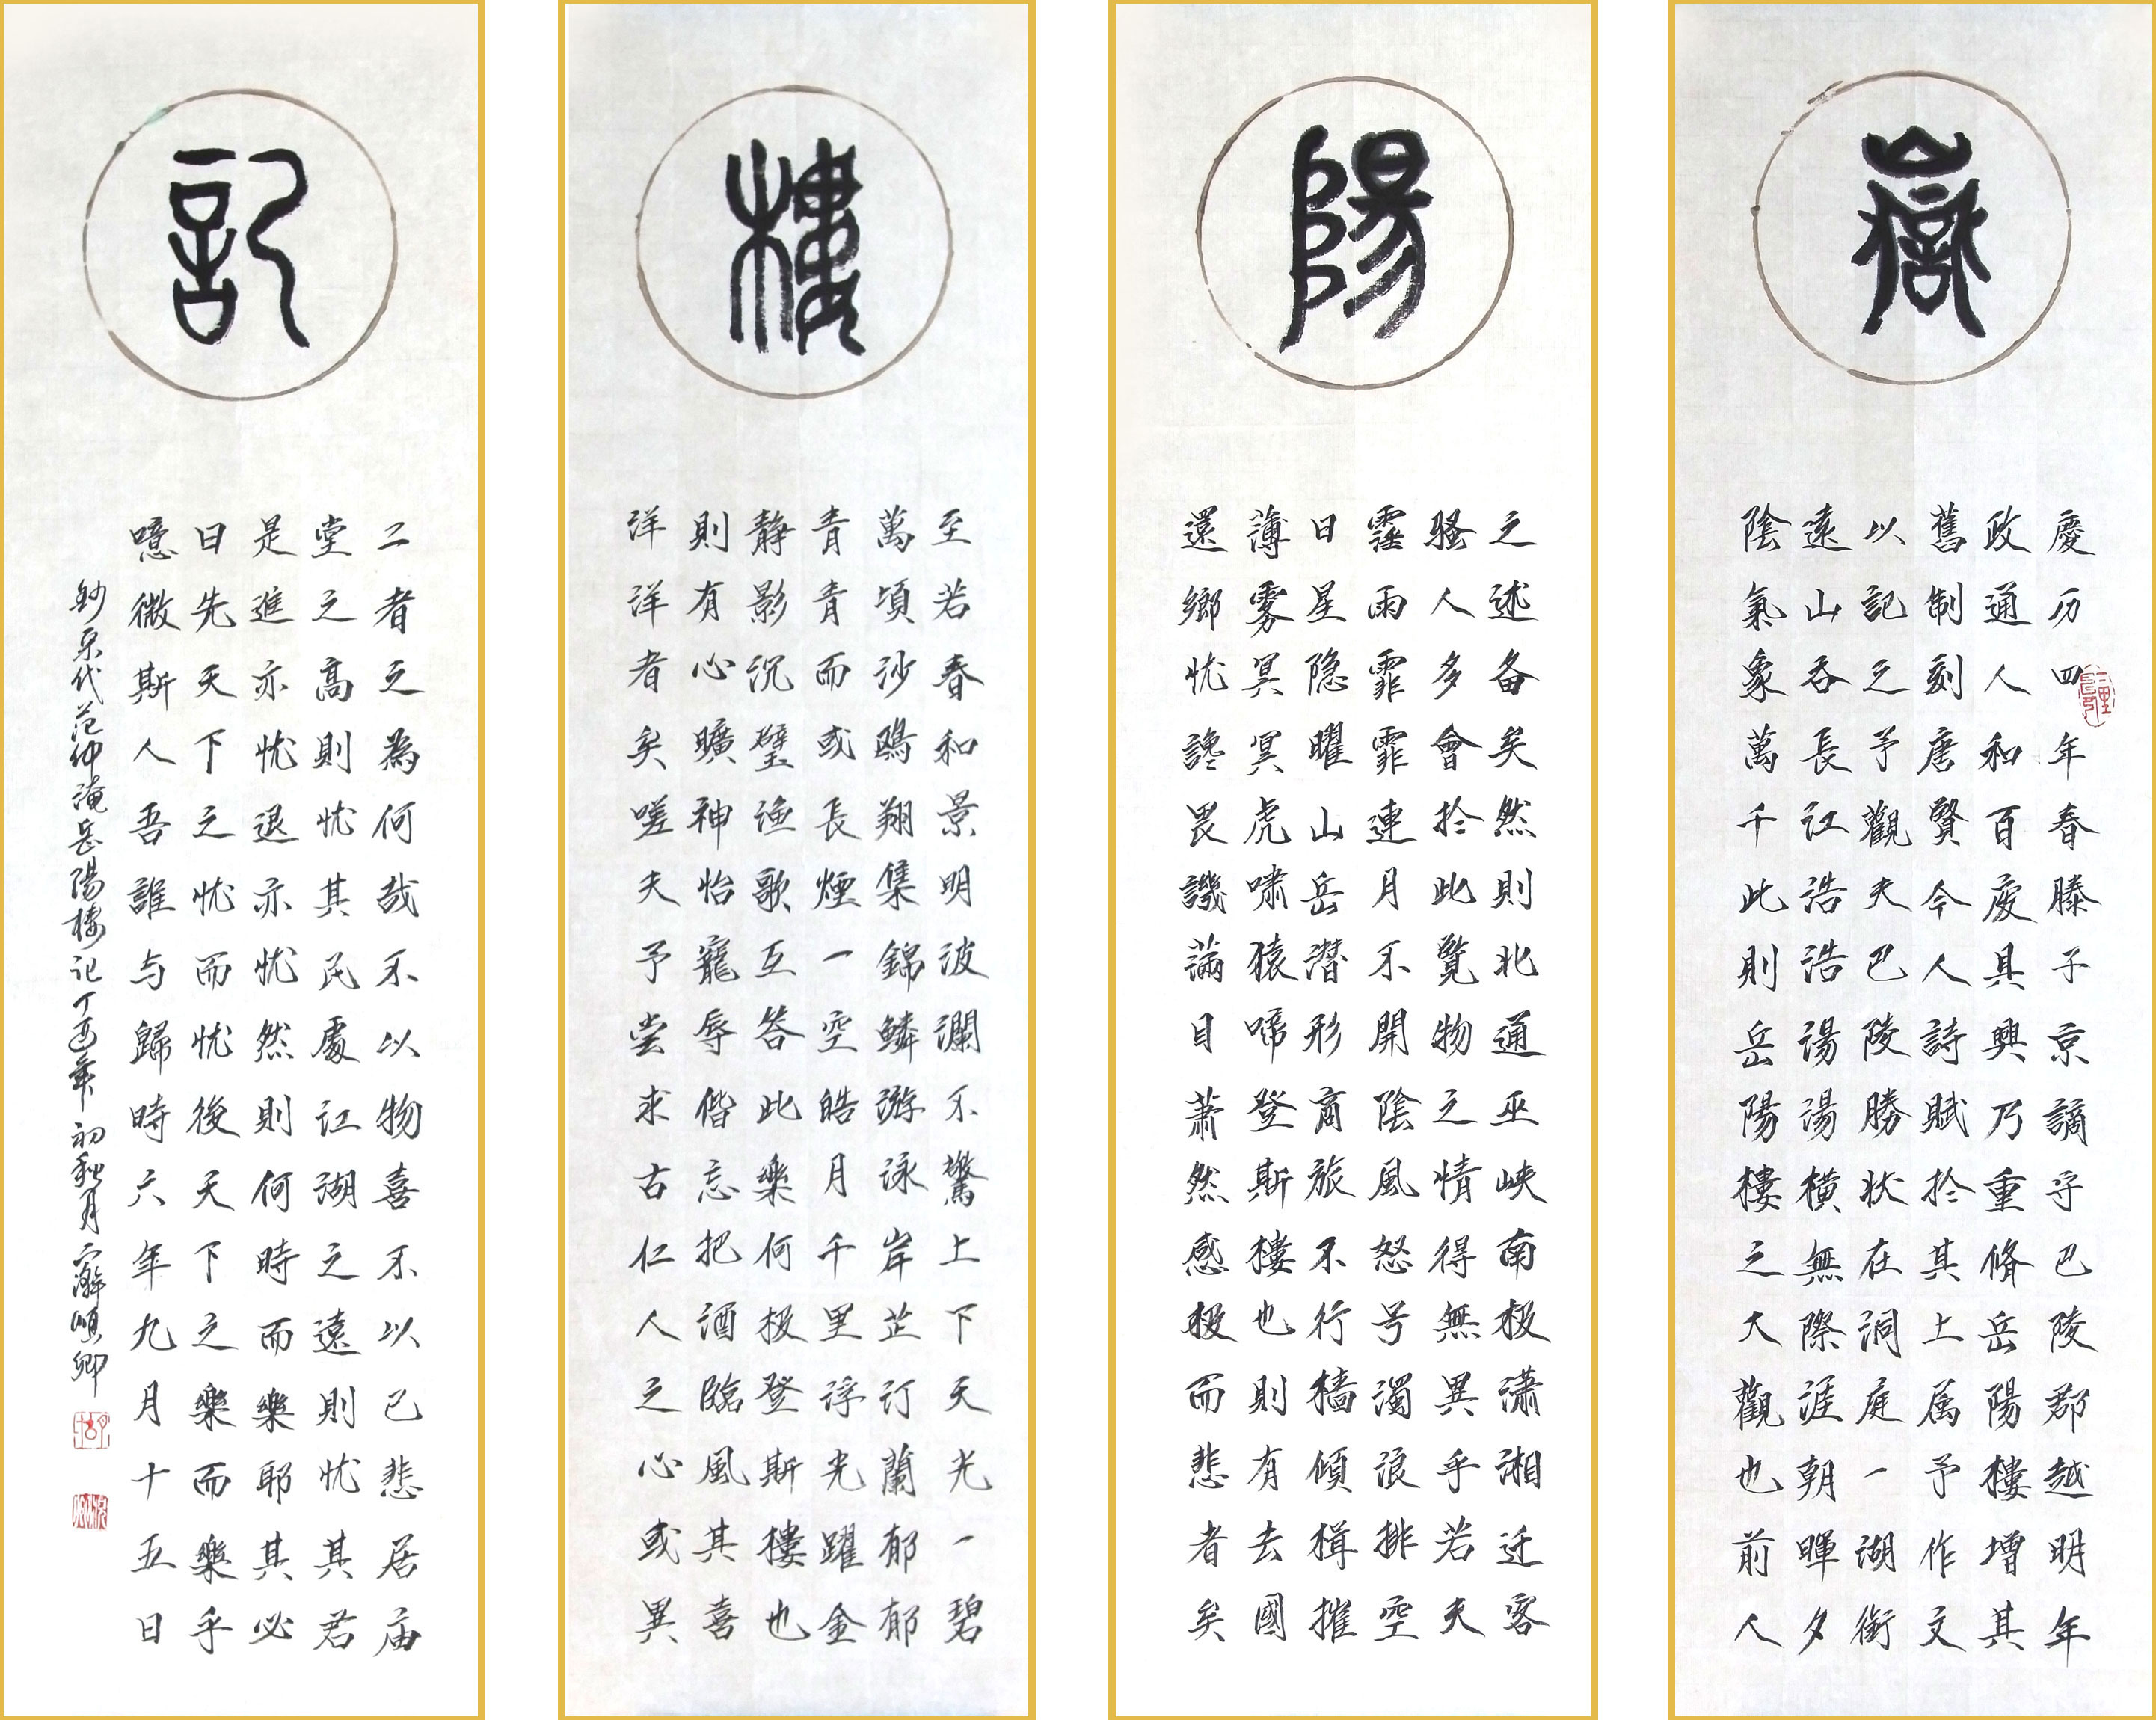 嶽
慶历四年春滕子京謫守巴陵郡越明年
政通人和百废具興乃重脩岳陽樓增其
舊制刻唐賢今人詩賦於其上属予作文
以記之予觀夫巴陵勝状在洞庭一湖銜
遠山吞長江浩浩湯湯橫無際涯朝暉夕
陰氣象萬千此則岳陽樓之大觀也前人
陽
之述备矣然則北通巫峡南极潇湘迁客
騷人多會於此覧物之情得無異乎若夫
霪雨霏霏連月不開陰風怒号濁浪排空
日星隐曜山岳潛形商旅不行檣傾楫摧
薄雾冥冥虎啸猿啼登斯樓也則有去國
還鄉忧讒畏譏滿目蕭然感极而悲者矣
樓
至若春和景明波瀾不驚上下天光一碧
萬頃沙鷗翔集錦鱗游泳岸芷汀蘭郁郁
青青而或長煙一空皓月千里浮光躍金
静影沉璧渔歌互答此樂何极登斯樓也
則有心曠神怡寵辱偕忘把酒臨風其喜
洋洋者矣嗟夫予尝求古仁人之心或異
記
二者之為何哉不以物喜不以己悲居庙
堂之高則忧其民處江湖之遠則忧其君
是進亦忧退亦忧然則何時而樂耶其必
曰先天下之忧而忧後天下之樂而樂乎
噫微斯人吾誰与歸時六年九月十五日
鈔宋代范仲淹岳陽樓记丁酉年初秋月